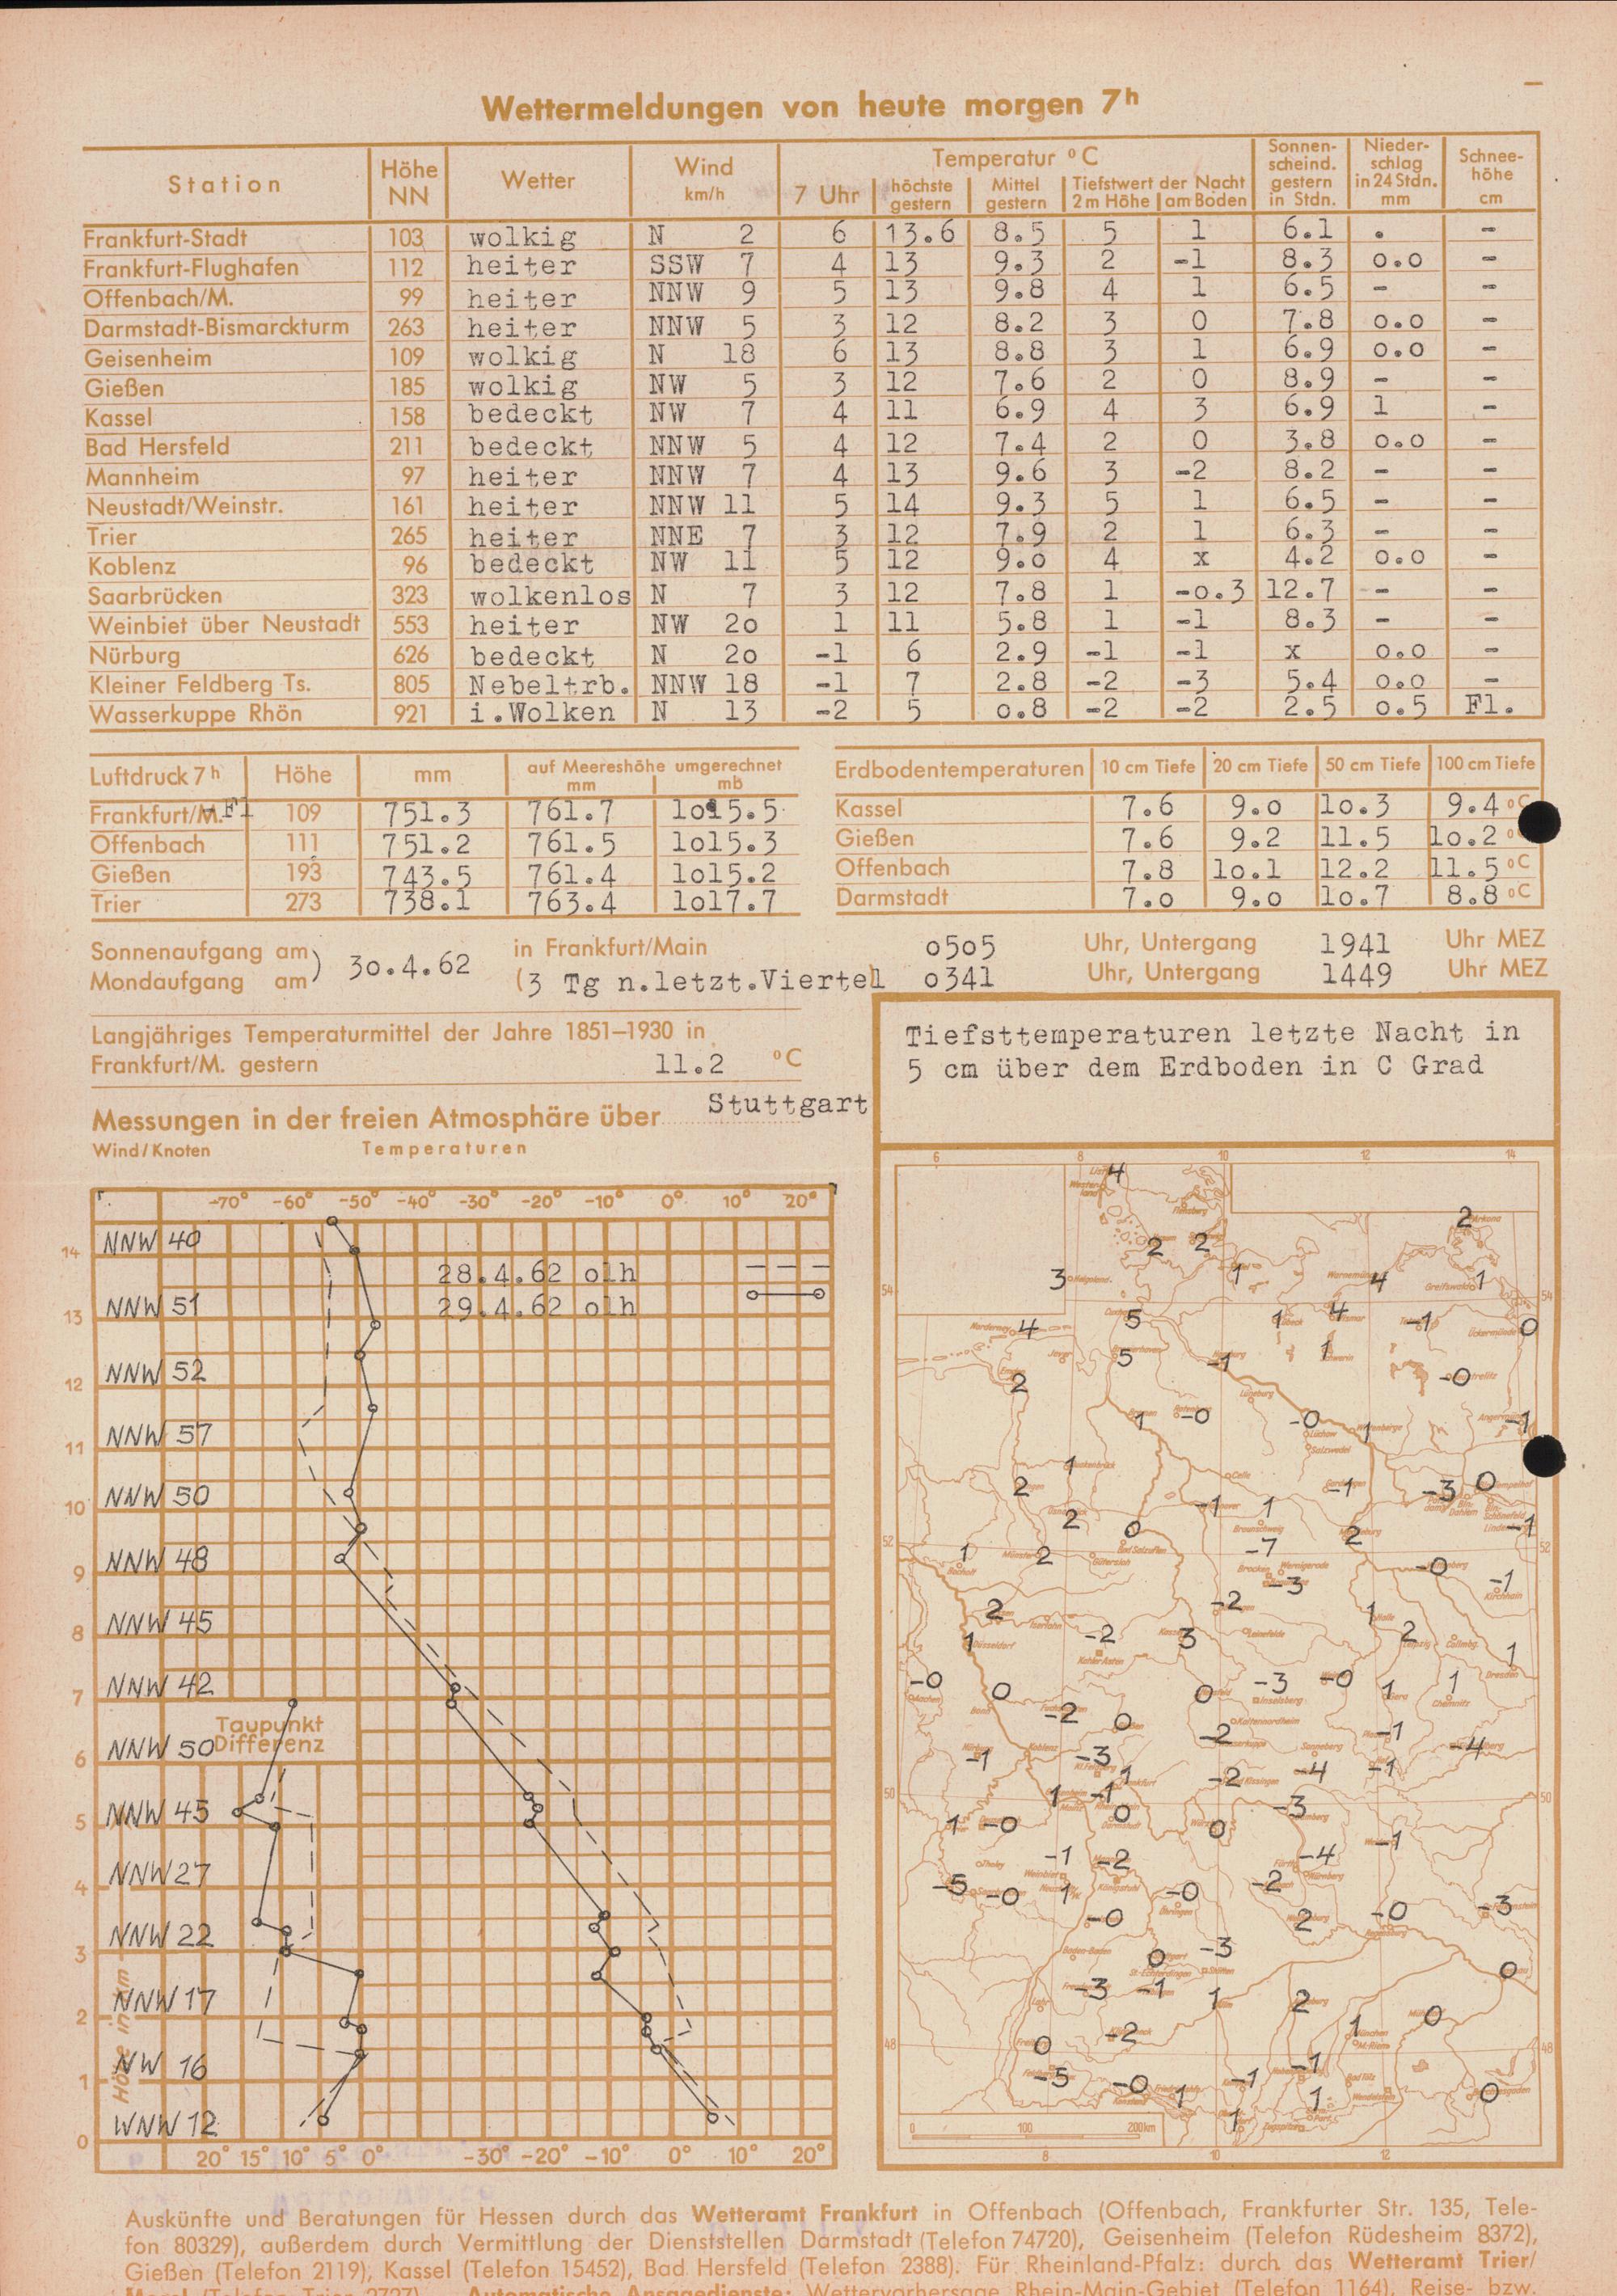 Wettermeldungen von heute morgen 7h
Station Höhe NN Wetter Wind km/h Temperatur °C Sonnenscheind. gestern in Stdn. Niederschlag in 24 Stdn. mm Schneehöhe cm
7 Uhr höchste gestern Mittel gestern Tiefstwert der Nacht 2 m Höhe am Boden
Frankfurt-Stadt 103 wolkig N 2 6 13.6 8.5 5 1 6.1 . -
Frankfurt-Flughafen 112 heiter SSW 7 4 13 9.3 2 -1 8.3 o.o -
Offenbach/M. 99 heiter NNW 9 5 13 9.8 4 1 6.5 - -
Darmstadt-Bismarckturm 263 heiter NNW 5 3 12 8.2 3 0 7.8 o.o -
Geisenheim 109 wolkig N 18 6 13 8.8 3 1 6.9 o.o -
Gießen 185 wolkig NW 5 3 12 7.6 2 0 8.9 - -
Kassel 158 bedeckt NW 7 4 11 6.9 4 3 6.9 1 -
Bad Hersfeld 211 bedeckt NNW 5 4 12 7.4 2 0 3.8 o.o -
Mannheim 97 heiter NNW 7 4 13 9.6 3 -2 8.2 - -
Neustadt/Weinstr. 161 heiter NNW 11 5 14 9.3 5 1 6.5 - -
Trier 265 heiter NNE 7 3 12 7.9 2 1 6.3 - -
Koblenz 96 bedeckt NW 11 5 12 9.o 4 x 4.2 o.o -
Saarbrücken 323 wolkenlos N 7 3 12 7.8 1 -o.3 12.7 - -
Weinbiet über Neustadt 553 heiter NW 2o 1 11 5.8 1 -1 8.3 - -
Nürburg 626 bedeckt N 2o -1 6 2.9 -1 -1 x o.o -
Kleiner Feldberg Ts. 805 Nebeltrb. NNW 18 -1 7 2.8 -2 -3 5.4 o.o -
Wasserkuppe Rhön 921 i.Wolken N 13 -2 5 o.8 -2 -2 2.5 o.5 Fl.
Luftdruck 7h Höhe mm auf Meereshöhe umgerechnet mm mb
Frankfurt/M.-Fl 109 751.3 761.7 1o15.5
Offenbach 111 751.2 761.5 1o15.3
Gießen 193 743.5 761.4 1o15.2
Trier 273 738.1 763.4 1o17.7
Erdbodentemperaturen 10 cm Tiefe 20 cm Tiefe 50 cm Tiefe 100 cm Tiefe
Kassel 7.6 9.o 1o.3 9.4 °C
Gießen 7.6 9.2 11.5 1o.2 °
Offenbach 7.8 1o.1 12.2 11.5 °C
Darmstadt 7.o 9.o 1o.7 8.8 °C
Sonnenaufgang am ) 3o.4.62 in Frankfurt/Main o5o5 Uhr, Untergang 1941 Uhr MEZ
Mondaufgang am (3 Tg n.letzt.Viertel o341 Uhr, Untergang 1449 Uhr MEZ
Langjähriges Temperaturmittel der Jahre 1851–1930 in
Frankfurt/M. gestern 11.2 °C
Messungen in der freien Atmosphäre über Stuttgart
Wind/Knoten Temperaturen
-70° -60° -50° -40° -30° -20° -10° 0° 10° 20°
14 NNW 40
28.4.62 o1h
29.4.62 o1h
13 NNW 51
12 NNW 52
11 NNW 57
10 NNW 50
9 NNW 48
8 NNW 45
7 NNW 42
Taupunkt
6 NNW 50 Differenz
5 NNW 45
4 NNW 27
3 NNW 22
2 NNW 17
1 NW 16
0 WNW 12
Höhe in km
20° 15° 10° 5° 0° -30° -20° -10° 0° 10° 20°
Tiefsttemperaturen letzte Nacht in
5 cm über dem Erdboden in C Grad
6 8 10 12 14
4
2
2 2
3 1 4 1
54 54
4 5 1 4 -1 0
5 -1 1
2 -0
1 -0 -0 1 -1
1
2 -1 1 -1 -3 0
2 0 2 -1
52 52
1 2 -7 -0
-3 -1
2 -2 1
1 -2 3 2 1
-0 0 0 -3 -0 1 1
-2 0 -2 -1
-1 -3 -4 -1 -4
1 -2
50 50
1 -1 -3
1 -0 0 0 -1
-1 -2 -4
-5 -0 1 -0 -2
-0 2 -0 -3
0 -3
-3 -1 1 2 0
48 48
0 -2 1 0
-5 -0 1 -1 -1 1 0
1
0 100 200km
8 10 12
Auskünfte und Beratungen für Hessen durch das Wetteramt Frankfurt in Offenbach (Offenbach, Frankfurter Str. 135, Tele-
fon 80329), außerdem durch Vermittlung der Dienststellen Darmstadt (Telefon 74720), Geisenheim (Telefon Rüdesheim 8372),
Gießen (Telefon 2119), Kassel (Telefon 15452), Bad Hersfeld (Telefon 2388). Für Rheinland-Pfalz: durch das Wetteramt Trier/
Mosel (Telefon Trier 2727). Automatische Ansagedienste: Wettervorhersage Rhein-Main-Gebiet (Telefon 1164), Reise- bzw.